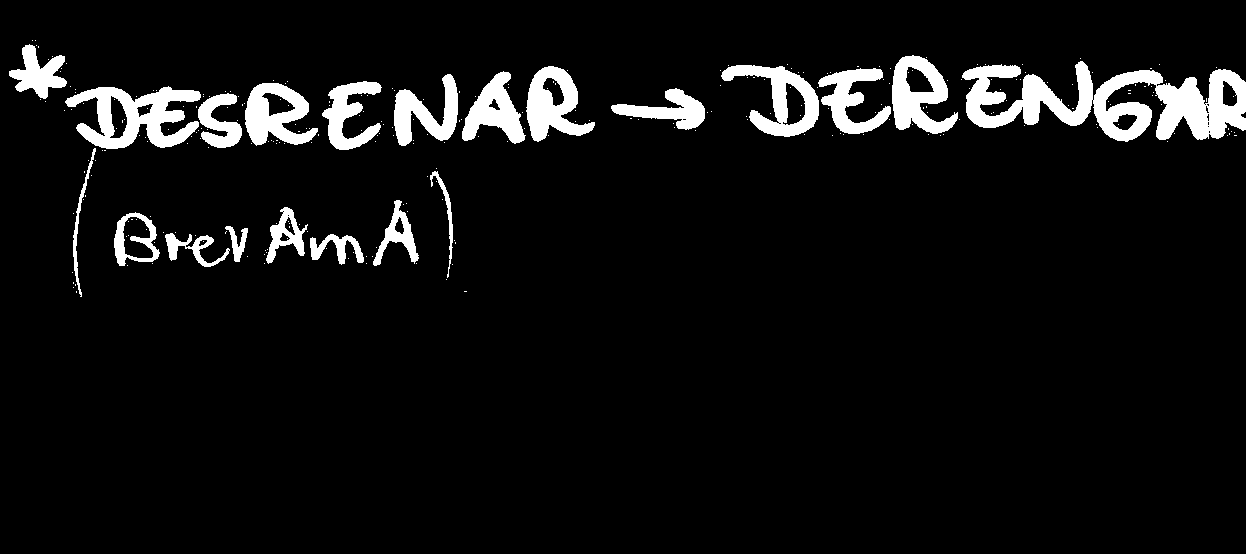 *DESRENAR → DERENGAR
(BrevAmA)